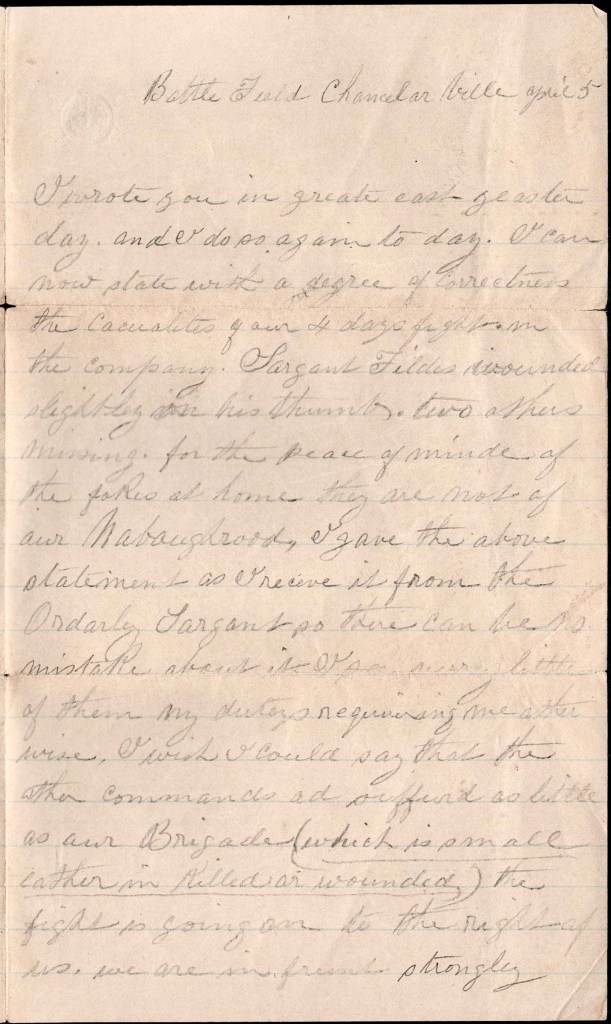 Battle Field Chancelar Ville April 5
I wrote you in greate east yeaster
day. and I do so again to day. I can
now state with a degree of correctness
the Caculites of our 4 days fight in
the company. Sargant Fildes wounded
slightley in his thumb. two others
missing. for the peace of minde of
the fokes at home they are not of
our Nabaughrood, I gave the above
statement as I receive it from the
Ordarley Sargant so there can be no
mistake about it I very little
of them my duteys requiering me other
wise, I wish I could say that the
other commands ad suffurd as little
as our Brigade (which is small
eather in Killed or wounded,) the
fight is going on to the right of
us. we are in frunt strongley